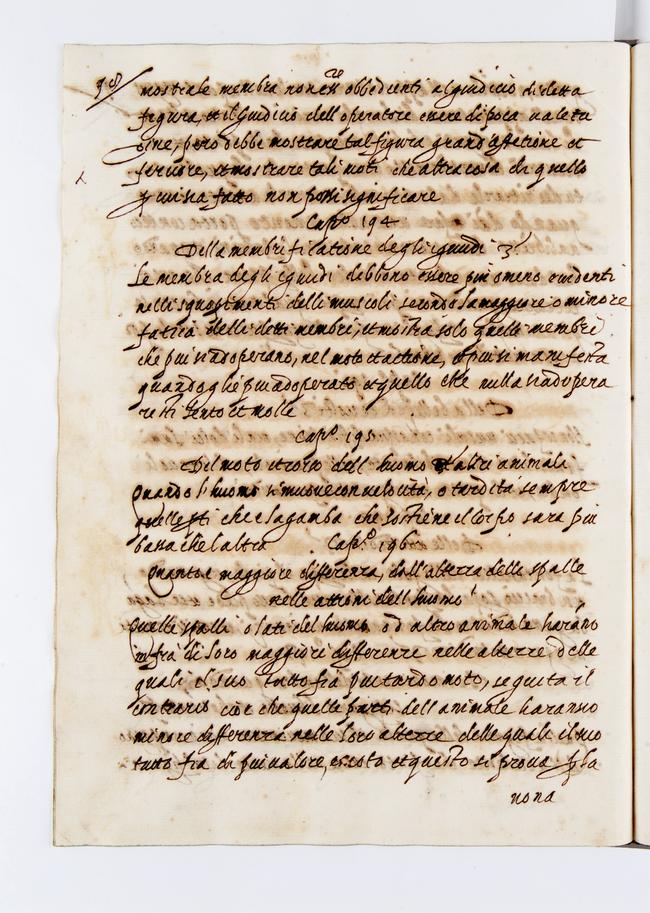 98
mostra le membra non esser obbedienti al giudicio di detta
figura, et il giuditio dell'operatore essere di poca valetu
dine, però debbe mostrare tal figura grand'affetione et
fervore, et mostrare tali moti che altra cosa da quello
sia fatto non possi significare
Cap.º 194
Della membrificatione degli ignudi
Le membra degli ignudi debbono essere piu o meno evidenti
nelli scuoprimenti delli muscoli secondo la maggiore o minore
fatica delli detti membri, et mostra solo quelli membri
che piu si adoperano, nel moto et actione, et piu si manifesta
quando gli è piu adoperato et quello che nulla s'adopera
resti lento et molle
Cap.º 195
Del moto et corso dell'huomo et altri animali
Quando l'huomo si muove con velocità, o tardità sempre
quella parte che è la gamba che sostiene il corpo sara piu
bassa che l'altra Cap.º 196
Quanto è maggiore differenza, dall'altezza delle spalle
nelle attioni dell'huomo
Quelle spalli o lati del huomo od altro animale haranno
infra di loro maggiori differenze nelle altezze delle
quali il suo tutto sia piu tardo moto, seguita il
contrario cioe che quelle parti dell'animale haranno
minore differenza nelle loro altezze delle quali il suo
tutto sia di piu valore, et questo si prova p la
nona